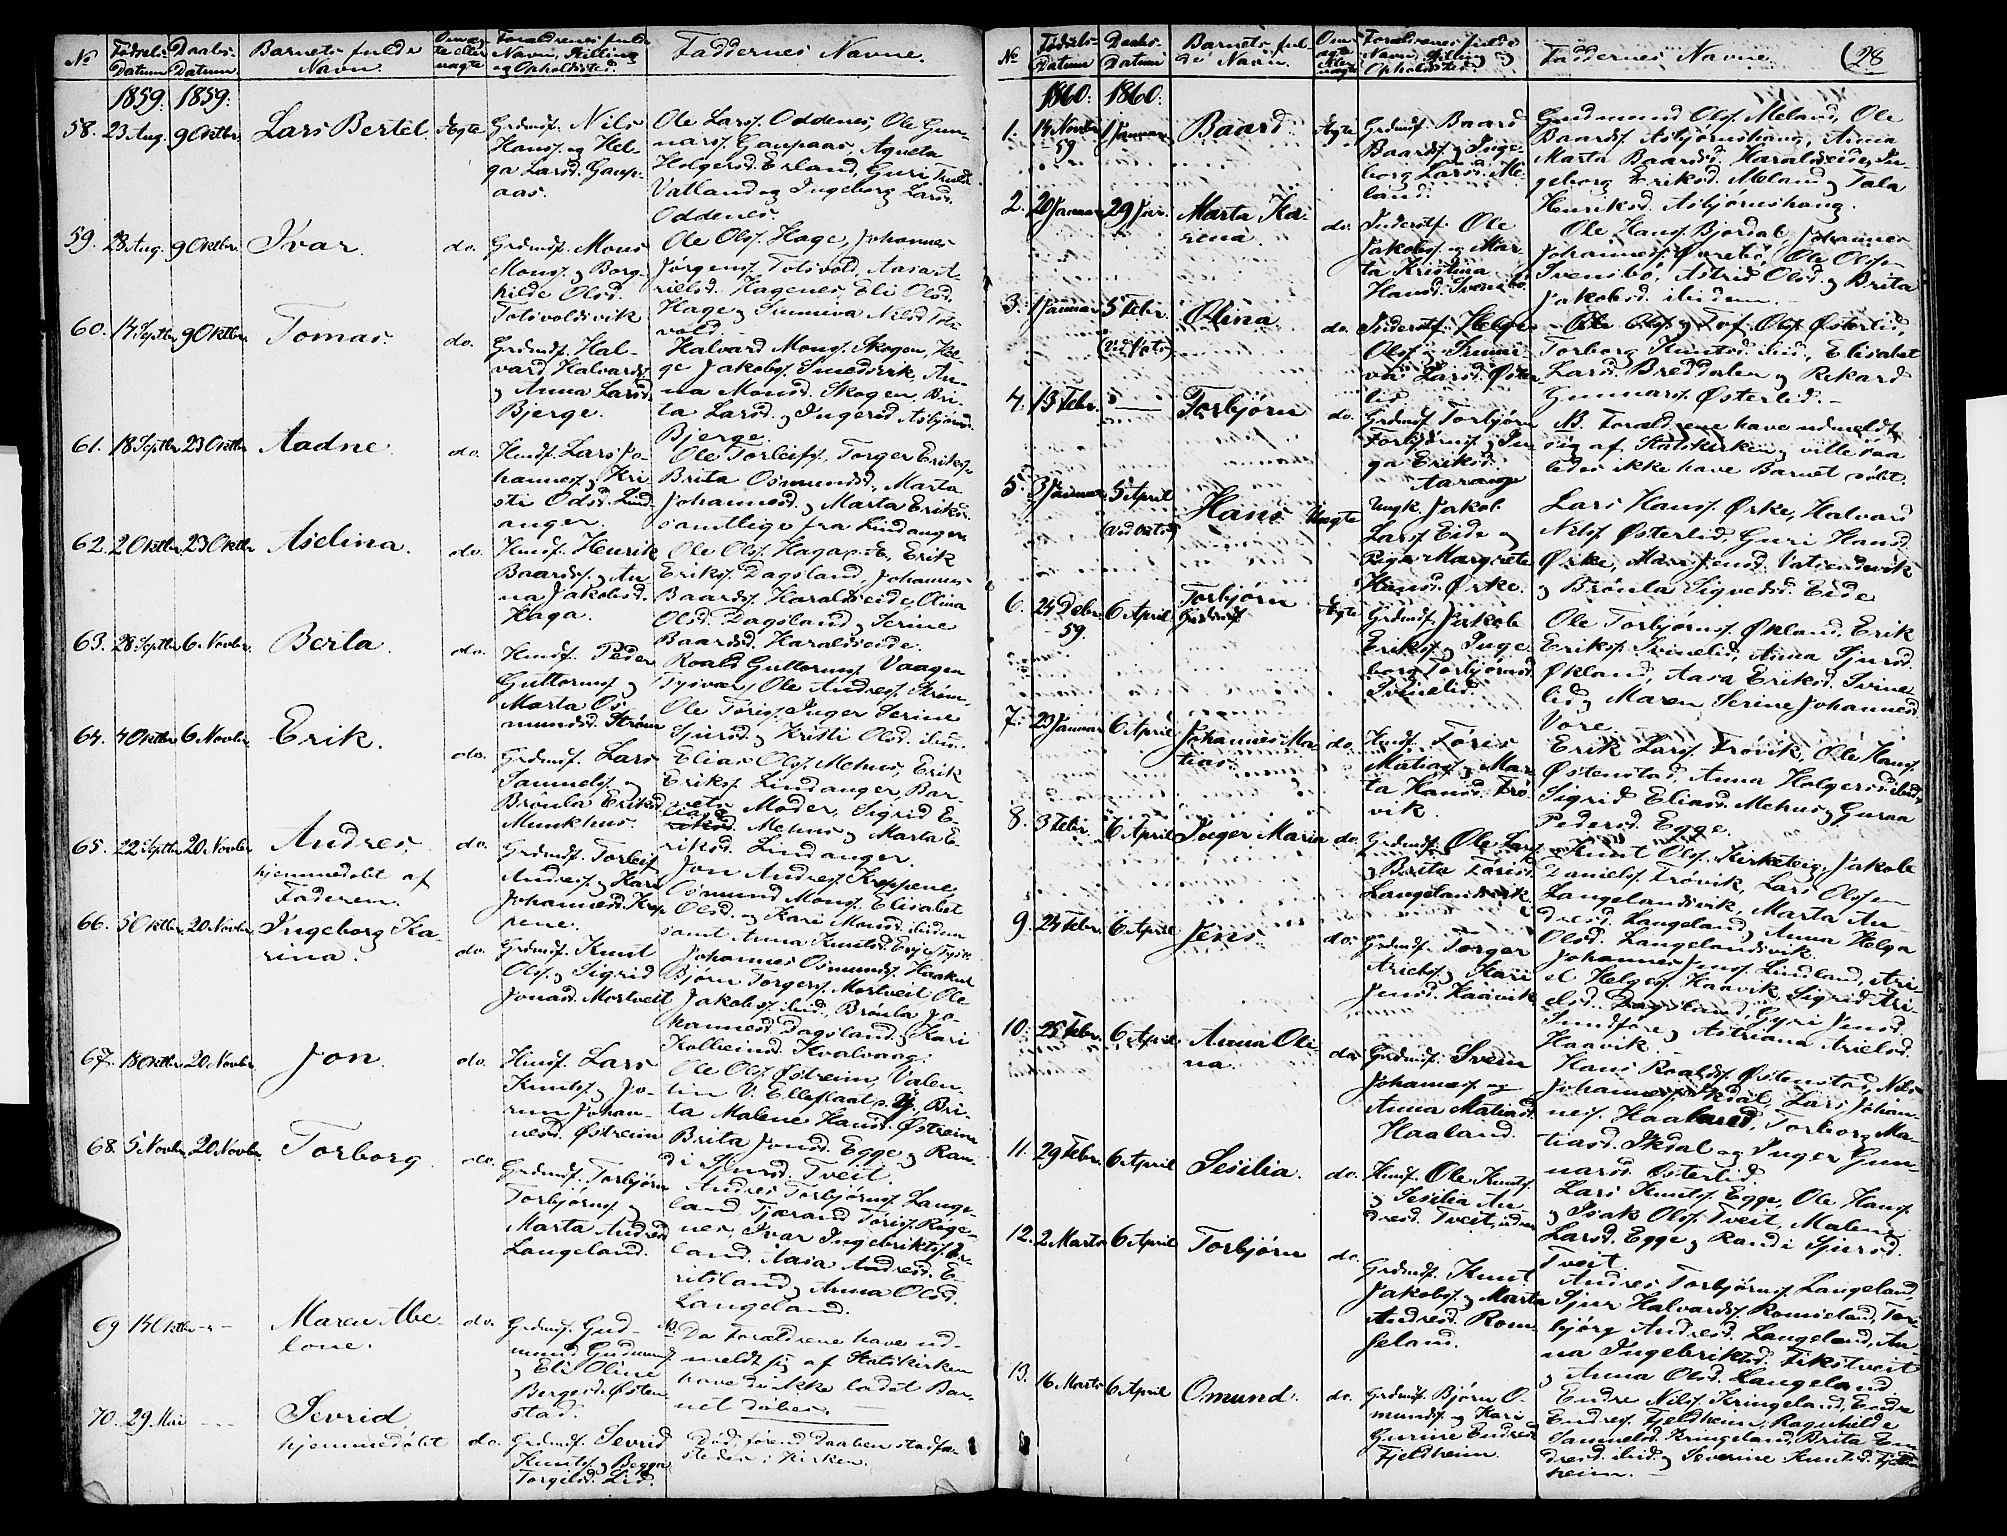 No
Fødsels-Datum
Daabs-Datum
Barnets fulde Navn.
Om ægte eller uægte
Forældrenes fulde Navn, Stilling og Opholdssted.
Faddernes Navne.
1859: 1859:
58. 23 Aug. 9 Oktbr. Lars Bertel. Ægte
Grdmd. Nils
Hansf. og Hel-
ga Larsd. Gaup-
aas.
Ole Larsf. Oddenes, Ole Gun-
narsf. Gaupaas, Agneta
Holgersd. Erland, Guri
Vatland og Ingeborg Larsd.
Oddenes.
59. 28 Aug. 9 Oktbr. Ivar. do.
Grdmd. Mons
Monsf. og Borg-
hilde Olsd.
Totsvoldsvik
Ole Olsf. Hage, Johannes
Jørgensf. Totsvold, Aasa A-
rielsd. Hagenes, Eli Olsd.
Hage og Sunniva Nilsd. Tots-
vold.
60. 14 Septbr. 9 Oktbr. Tomas. do.
Grdmd. Hal-
vard Halvardsf.
og Anna Larsd.
Bjerge.
Halvard Monsf. Skogen, Hel-
ge Jakobsf. Smedsvik, An-
na Monsd. Skogen, Bri-
ta Larsd. og Ingerid Asbjørnsd.
Bjerge.
61. 18 Septbr. 23 Oktbr. Aadne. do.
Husmd. Lars Jo-
hannesf. og Kri-
sti Odsd. Lind-
anger.
Ole Torleifsf., Torger Eriksf.
Brita Osmundsd., Marta
Johannesd. og Marta Eriksd.
samtlige fra Lindanger.
62. 2 Oktbr. 23 Oktbr. Aselina. do.
Husmd. Henrik
Baardsf. og An-
na Jakobsd.
Haga.
Ole Olsf. Haga, Erik
Eriksf. Dagsland, Johannes
Baardsf. Haraldseide, Olina
Olsd. Dagsland og Serine
Baardsd. Haraldseide.
63. 28 Septbr. 6 Novbr. Berta. do.
Husmd. Peder
Guttormsf. og
Marta Os-
mundsd. Strøm
Roald Guttormsf. Vaagen
Tysvær, Ole Andresf. Strøm
Ole Torisf. Inger Serine
Sjursd. og Kristi Olsd. ibid.
64. 4 Oktbr. 6 Novbr. Erik. do.
Grdmd. Lars
Samuelsf. og
Brønla Eriksd.
Munkhus.
Elias Olsf. Mehus, Erik
Eriksf. Lindanger, Bar-
nets Moder, Sigrid E-
liasd. Mehus og Marta E-
riksd. Lindanger.
65. 22 Septbr. 20 Novbr. Andres, do.
hjemmedøbt af
Faderen.
Grdmd. Torleif
Andresf. og Kari
Johannesd. Kop-
pene.
Jon Andresf. Koppene,
Osmund Monsf. Elisabet
Olsd. og Kari Monsd. ibidem
samt Anna Knutsd.
66. 5 Oktbr. 20 Novbr. Ingeborg Ka-
rina. do.
Grdmd. Knut
Olsf. og Sigrid
Jonasd. Mortveit
Johannes Osmundsf.
Bjørn Torgersf. Mortveit Ole
Jakobsf. ibid., Brønla Jo-
hannesd. Dagsland og Kari
Kolbeinsd. Kvalvaag.
67. 18 Oktbr. 20 Novbr. Jon. do.
Husmd. Lars
Knutsf. og Jo-
runn Johan-
nesd. Østreim
Ole Olsf. Østreim, Valen-
tin V. Ellefsaat, Bri-
ta Malene Hansd. Østreim
Brita Jonsd. Egge og Ran-
di Sjursd. Tveit.
68. 5 Novbr. 20 Novbr. Torborg. do.
Grdmd. Torbjørn
Torbjørnsf. og
Marta Andresd.
Langeland.
Andres Torbjørnsf. Lange-
land, Tjærand Torisf. Rage-
nes, Ivar Ingebriktsf. Er-
land, Aasa Andresd. E-
ritsland og Anna Olsd.
Langeland.
69 14 Oktbr. -"- Maren Abe-
lone. do.
Grdmd. Gud-
mund Gudmunsf.
og Eli Oline
Borgesd. Østen-
stad.
NB. Da Forældrene have ud-
meldt sig af Statskirken
have de ikke ladet Bar-
net døbe.
70. 29. Mai - - - Sevrid
hjemmedøbt do.
Grdmd. Sevrid
Knutsf. og Begga
Torgilsd. Lid.
Død, førend Daaben stadfæ-
stedes i Kirken.
No
Fødsels-Datum
Daabs-Datum
Barnets ful-
de Navn.
Om ægte eller uægte
Forældrenes fulde
Navn, Stilling og
Opholdssted.
Faddernes Navne.
28
1860: 1860:
1. 14 Novbr. 59. 1 Januar Baard. Ægte
Grdmd. Baard
Baardsf. og Inge-
borg Larsd. Me-
land.
Gudmund Olsf. Meland, Ole
Baardsf. Asbjørnshaug, Anna
Marta Baardsd. Haraldseide, In-
geborg Eriksd. Meland og Tala
Henriksd. Asbjørnshaug.
2. 20 Januar 29 Jan. Marta Ka-
rina. do.
Inderstf. Ole
Jakobsf. og Mar-
ta Kristina
Hansd. Svensbø
Ole Hansf. Bjordal, Johannes
Johannesf. Ørebø, Ole Olsf.
Svensbø, Astrid Olsd. og Brita
Jakobsd. ibidem.
3. 1 Januar 5 Febr. (ved Vats) Olina do.
Inderstf. Helge
Olsf. og Sunni-
va Larsd. Øster-
lid
Ole Olsf. og Tof. Olsf. Østerlid,
Torborg Knutsd. ibid., Elisabet
Larsd. Breddalen og Rikard
Gunnarsf. Østerlid.
4. 13 Febr. — Torbjørn do.
Grdmd. Torbjørn
Torbjørnsf. og In-
ga Eriksd.
Aarange
NB. Forældrene have udmeldt
sig af Statskirken og ville saa-
ledes ikke have Barnet døbt.
5. 3 Januar 5 April (ved Vats) Hans Uægte
Ungk. Jakob
Larsf. Eide og
Pige Margrete
Hansd. Ørke.
Lars Hansf. Ørke, Halvard
Nilsf. Østerlid, Guri Hansd.
Ørke, Mari Jensd. Vatsendvik
og Brønla Sigvedsd. Eide
6. 24 Debr. 59. 6 April Torbjørn
Gudmd. Ægte
Grdmd. Jakob
Eriksf. og Inge-
borg Torbjørnsd.
Svinelid.
Ole Torbjørnsf. Økland, Erik
Eriksf. Svinelid, Anna Sjursd.
Økland, Aasa Eriksd. Svine-
lid og Maren Serene Johannesd.
Vore.
7. 23 Januar 6 April Johannes Ma-
tias. do.
Husmd. Tøris
Matiasf. og Mar-
ta Hansd. Frø-
vik.
Erik Larsf. Frøvik, Ole Hansf.
Østenstad, Anna Holgersd. ibid.,
Sigrid Eliasd. Mehus og Guroa
Pedersd. Egge.
8. 3 Febr. 6 April Inger Maria do.
Grdmd. Ole Larsf.
og Brita Tørisd.
Langelandsvik.
Knut Olsf. Kirketeig, Jakob
Danielsf. Frøvik, Lars Olsf.
Langelandsvik, Marta An-
dresd. Langeland og Anna Helga
Olsd. Langelandsvik.
9. 24 Febr. 6 April Jens do.
Grdmd. Torger
Arielsf. og Kari
Jensd. Haavik
Johannes Jensf. Lindland, Ari-
el Helgesf. Haavik, Sigrid Ari-
elsd. Dagsland, Gyri Jensd.
Sundføre og Astriana Arielsd.
Haavik.
10. 25 Febr. 6 April Anna Oli-
na. do.
Grdmd. Svein
Johannesf. og
Anna Matiasd.
Haaland.
Hans Roaldsf. Østenstad, Nils
Johannesf. Skdal, Lars Johan-
nesf. Haaland, Torborg Ma-
tiasd. Skdal og Inger Gun-
narsd. Østerlid.
11. 29 Febr. 6 April Sesilia. do.
Husmd. Ole Knutsf.
og Sesilia An-
dresd. Tveit, ødre
Lars Knutsf. Egge, Ole Hansf.
og Isak Olsf. Tveit, Malena
Larsd. Egge og Randi Sjursd.
Tveit.
12. 2 Marts 6 April Torbjørn do.
Grdmd. Knut
Jakobsf. og Marta
Andresd. Rom-
seland.
Andres Torbjørnsf. Langeland,
Sjur Halvardsf. Romseland, Tor-
bjørg Andresd. Langeland, An-
na Ingebriktsd. Fikstveit
og Anna Olsd. Langeland
13. 16 Marts 6 April Omund. do.
Grdmd. Bjørn O-
mundsf. og Kari
Gurine Endresd.
Fjeldheim.
Endre Nilsf. Kringeland, Endre
Endresf. Fjeldheim, Ragnhilde
Samuelsd. Kringeland, Brita En-
dresd. ibid. og Severine Knutsd. Fjeld-
heim.